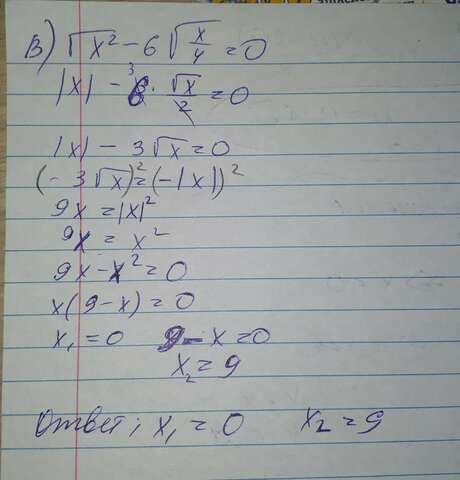 в) √x² - 6 √x/4 = 0
|x| - 6³ · √x/2 = 0
|x| - 3√x = 0
(- 3√x)² = (-|x|)²
9x = |x|²
9x = x²
9x - x² = 0
x(9 - x) = 0
x₁ = 0 9 - x = 0
x₂ = 9
Ответ: x₁ = 0 x₂ = 9